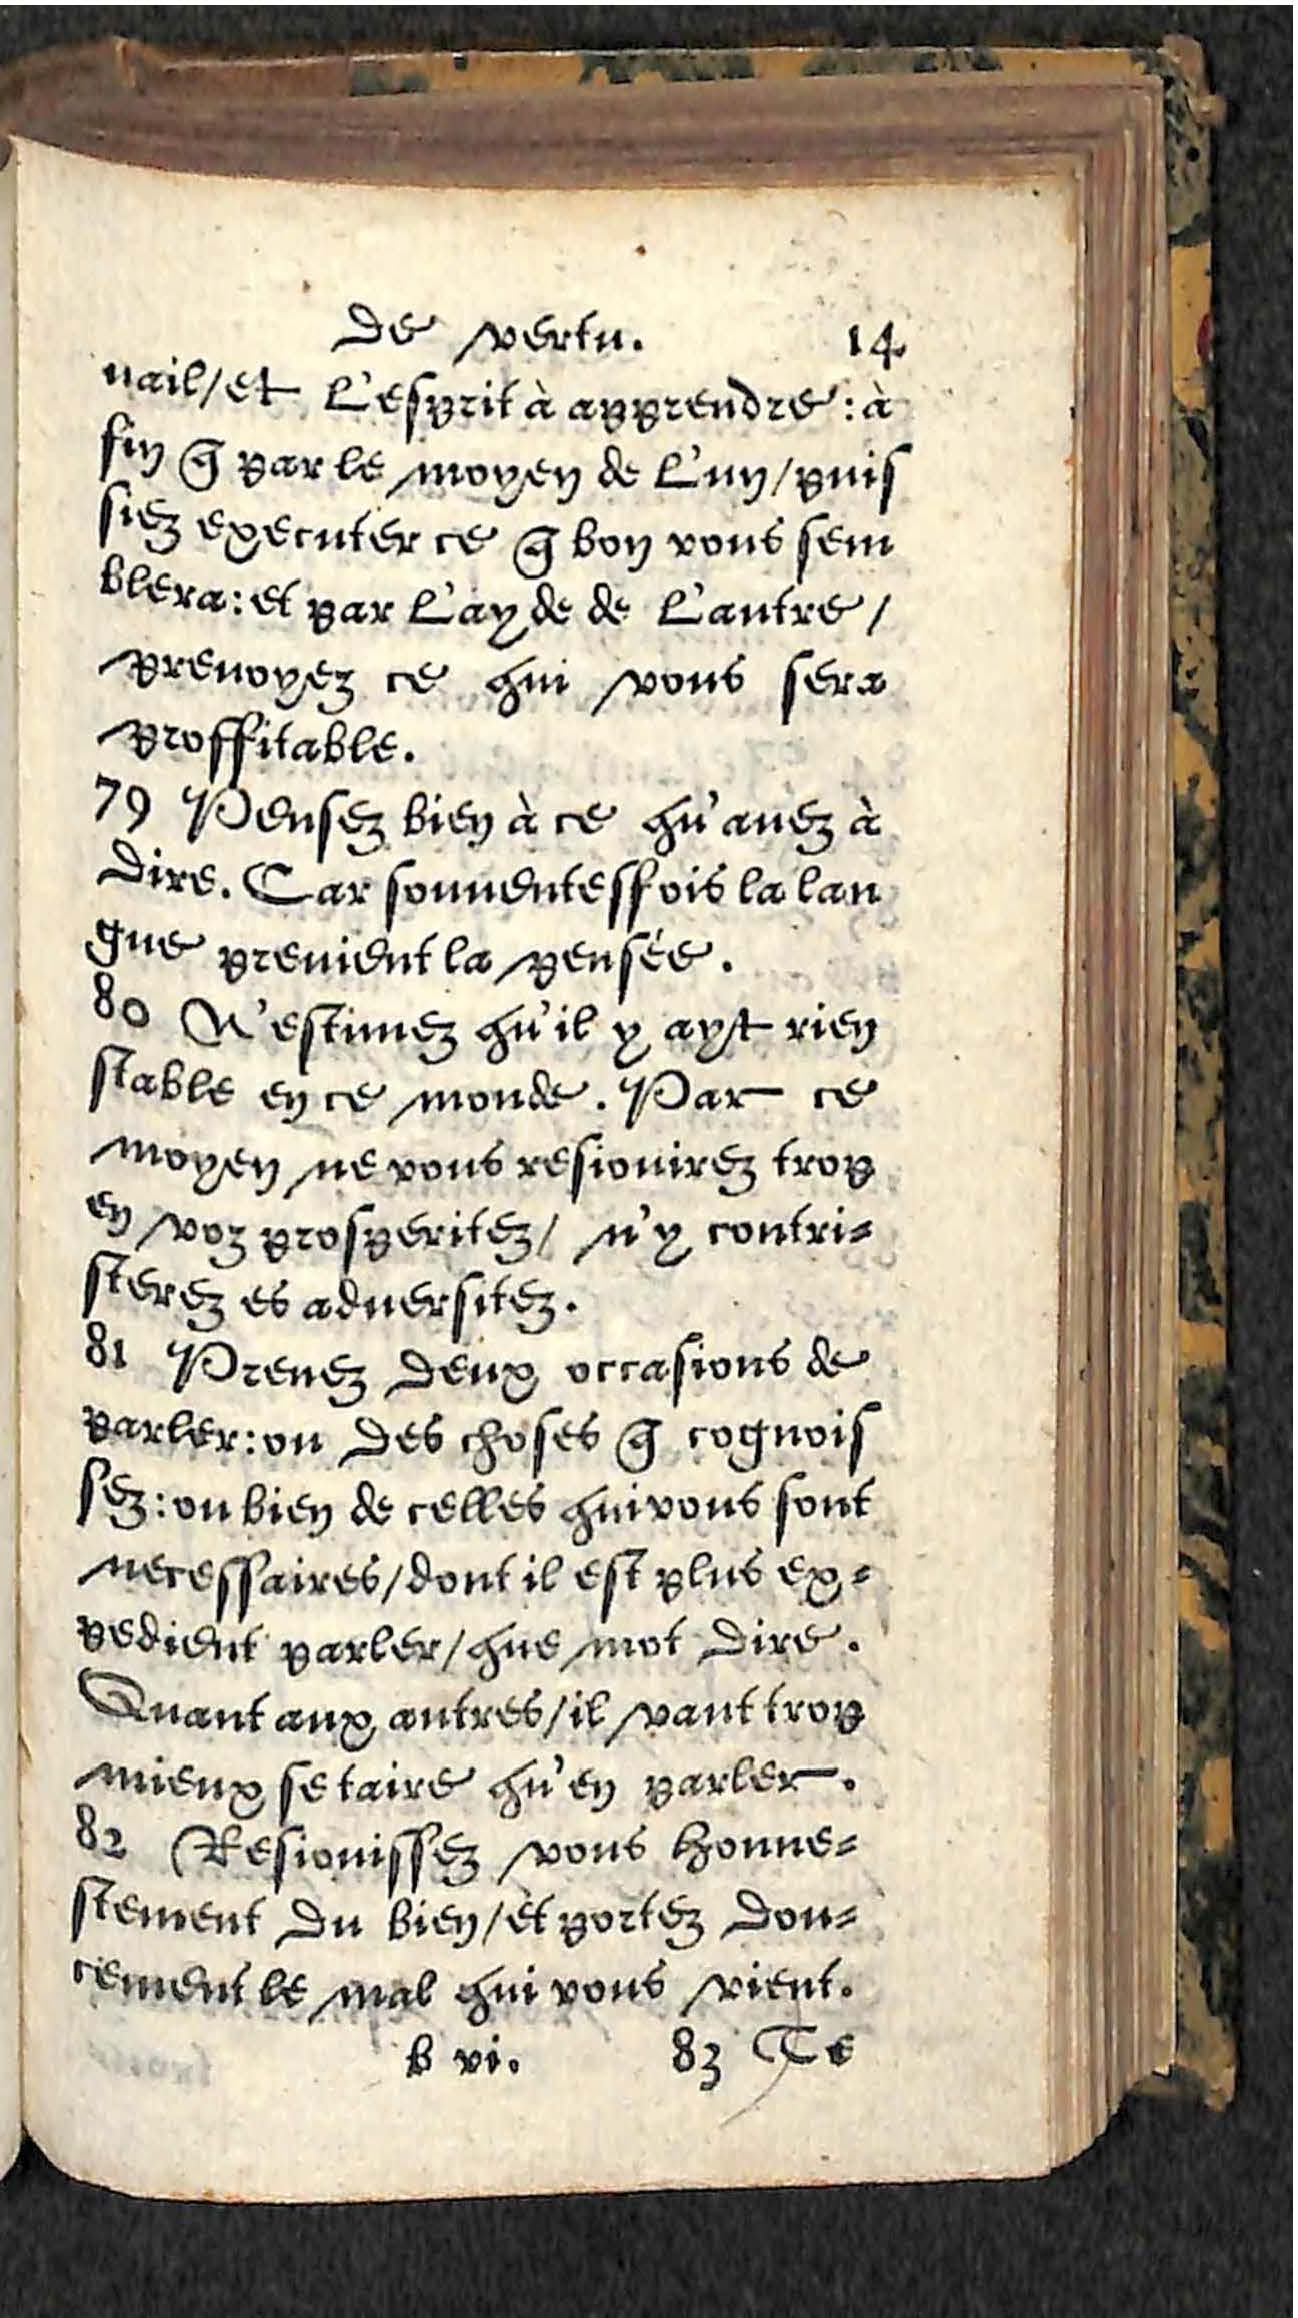 de vertu. 14
uail/et l'esprit à apprendre: à
fin q̃ par le moyen de l'un/puis
siez executer ce q̃ bon vous sem
blera: et par l'ayde de l'autre/
preuoyez ce qui vous sera
proffitable.
79 Pensez bien à ce qu'auez à
dire. Car souuentesfois la lan
gue preuient la pensée.
80 N'estimez qu'il y ayt rien
stable en ce monde. Par ce
moyen ne vous resiouirez trop
en voz prosperitez/ n'y contri-
sterez es aduersitez.
81 Prenez deux occasions de
parler: ou des choses q̃ cognois
sez: ou bien de celles qui vous sont
necessaires/dont il est plus ex-
pedient parler/que mot dire.
Quant aux autres/il vaut trop
mieux se taire qu'en parler.
82 Resiouissez vous honne-
stement du bien/et portez dou-
cement le mal qui vous vient.
b vi. 83 Te